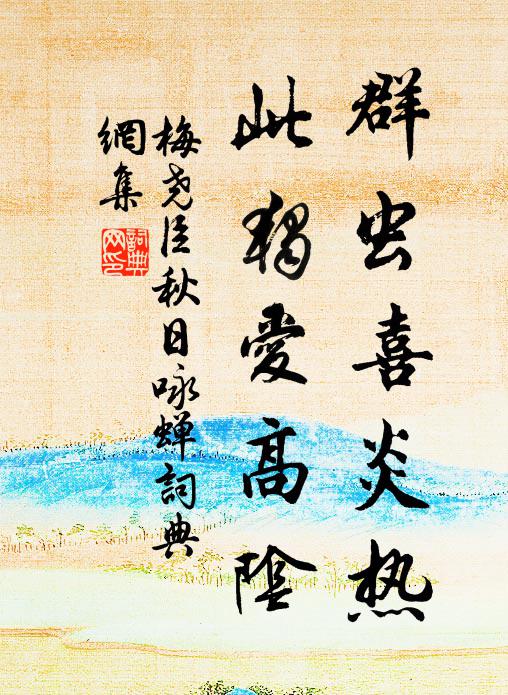 群虫喜炎热
此独爱高阴
梅尧臣秋日咏蝉词典
網集
詞典
网印